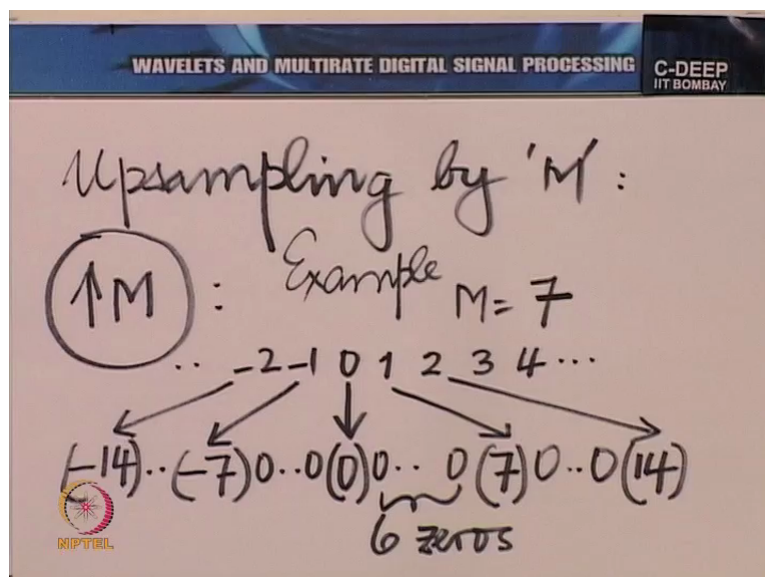 WAVELETS AND MULTIRATE DIGITAL SIGNAL PROCESSING
C-DEEP
IIT BOMBAY
Upsampling by 'M' :
↑M : Example M = 7
·· -2 -1 0 1 2 3 4 ···
(-14)··(-7)0··0(0)0·· 0(7)0··0(14)
6 zeros
NPTEL